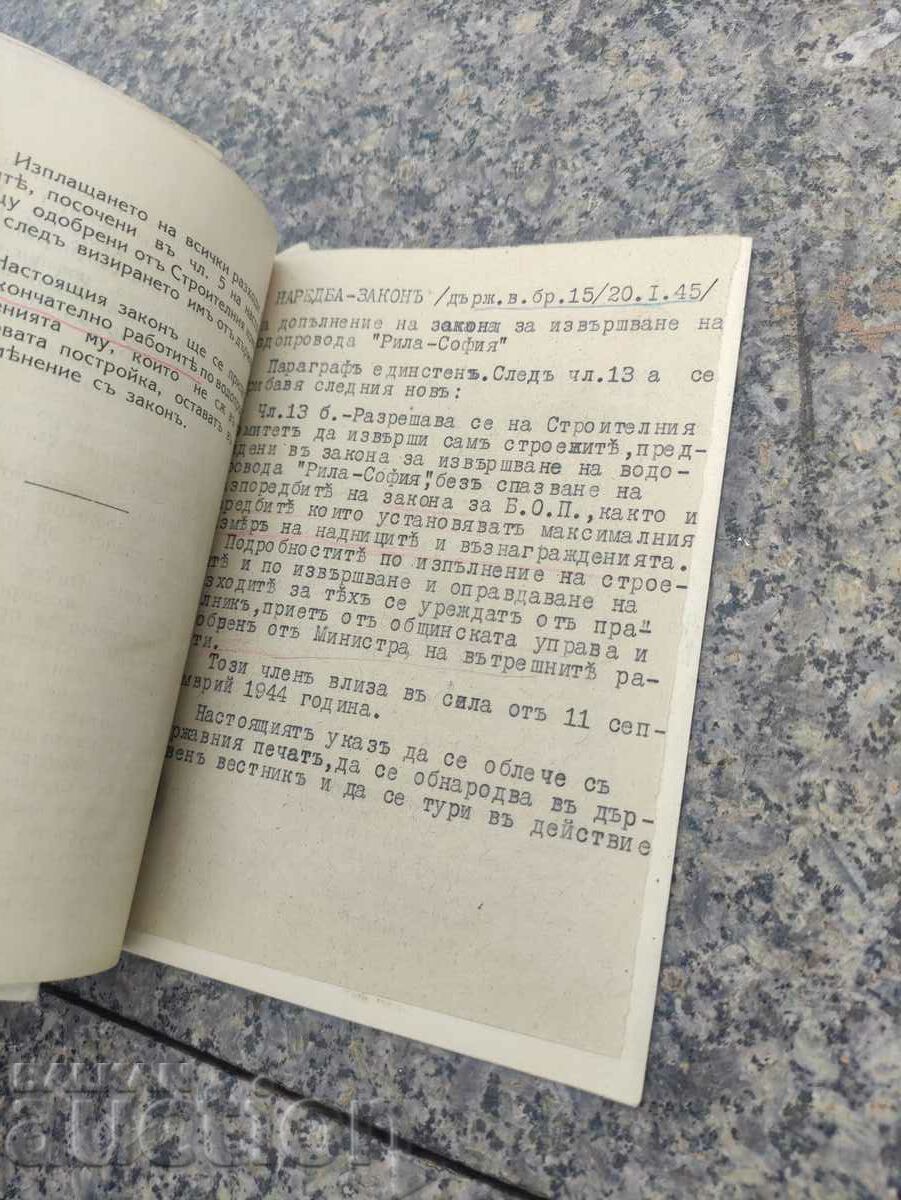 Изплащането на всички
посочени въ чл. 5 на
одобрени отъ Строителния
следъ визирането имъ отъ
Настоящия законъ ще се
работитѣ по
му, които не сж
постройка, оставатъ
съ законъ.
НАРЕДБА-ЗАКОНЪ /държ.в.бр.15/20.I.45/
допълнение на закона за извършване на
"Рила-София"
Параграфъ единственъ.Следъ чл.13 а се
следния новъ:
Чл.13 б.-Разрешава се на Строителния
да извърши самъ строежитѣ,пред-
въ закона за извършване на водо-
"Рила-София",безъ спазване на
на закона за Б.О.П.,както и
които установяватъ максималния
на надницитѣ и възнагражденията.
Подробноститѣ по изпълнение на строе-
и по извършване и оправдаване на
за тѣхъ се уреждатъ отъ пра-
приетъ отъ общинската управа и
отъ Министра на вътрешнитѣ ра-
Този членъ влиза въ сила отъ 11 сеп-
1944 година.
Настоящиятъ указъ да се облече съ
печатъ,да се обнародва въ дър-
вестникъ и да се тури въ действие
БАЛКАН
auction